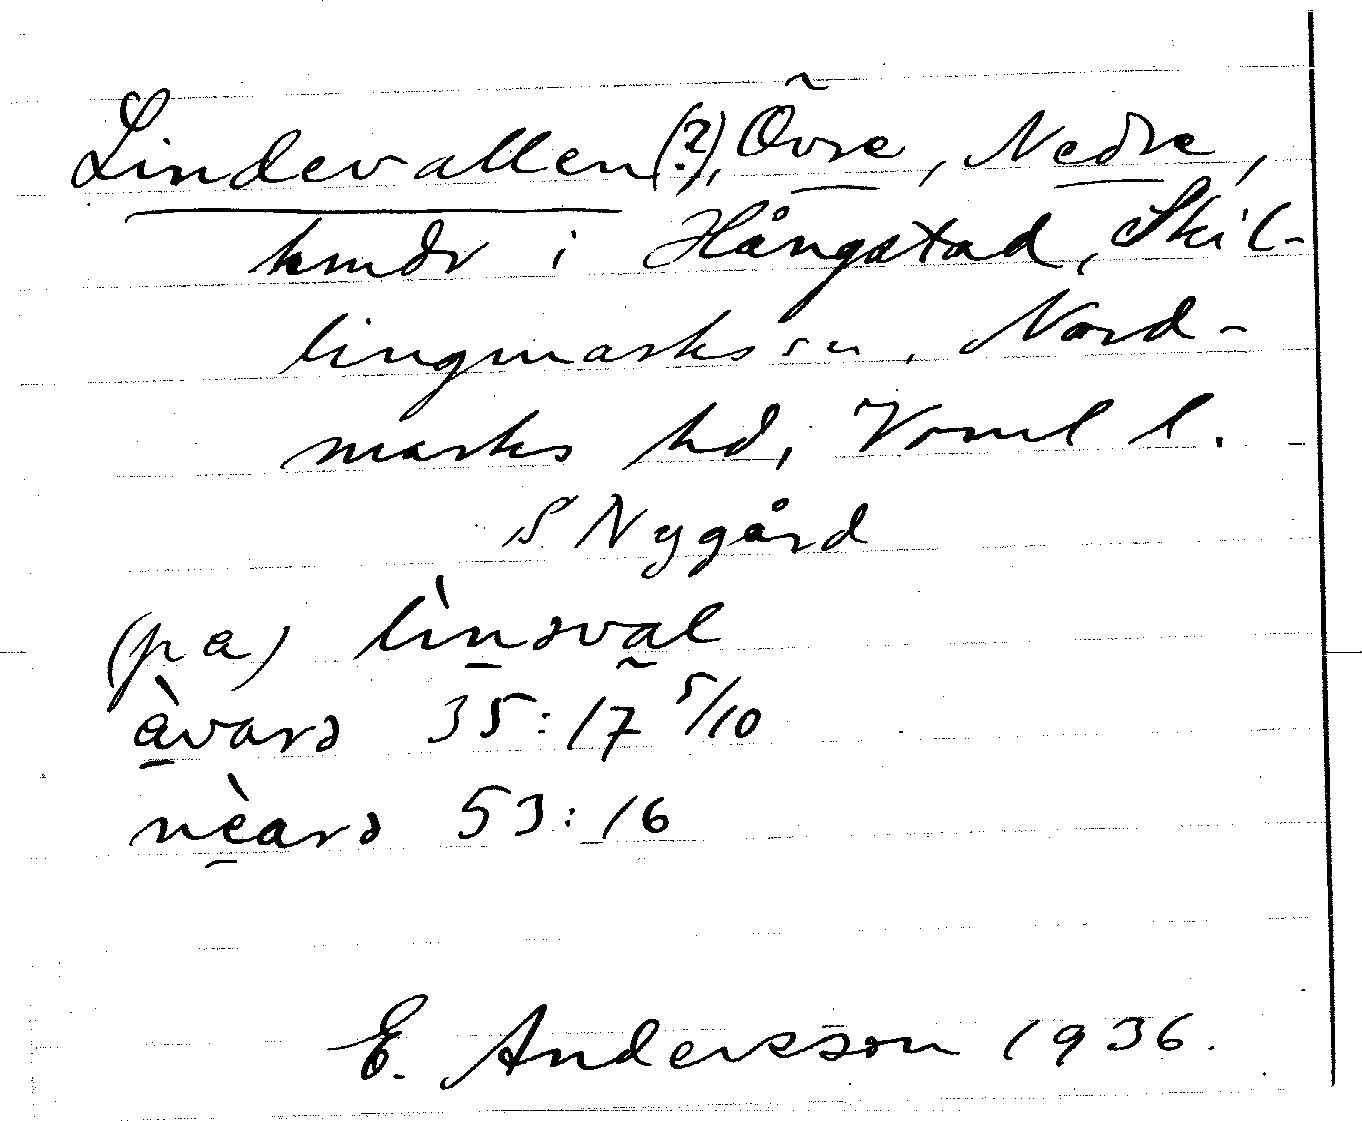 Lindevallen (?), Övre, Nedre,
hmdr i Hångstad, Skil-
lingmarks sn, Nord-
marks hd, Verml l.
S Nygård
(pa) lìnsval
àvarə 35:17 5/10
nèarə 53:16
E. Andersson 1936.